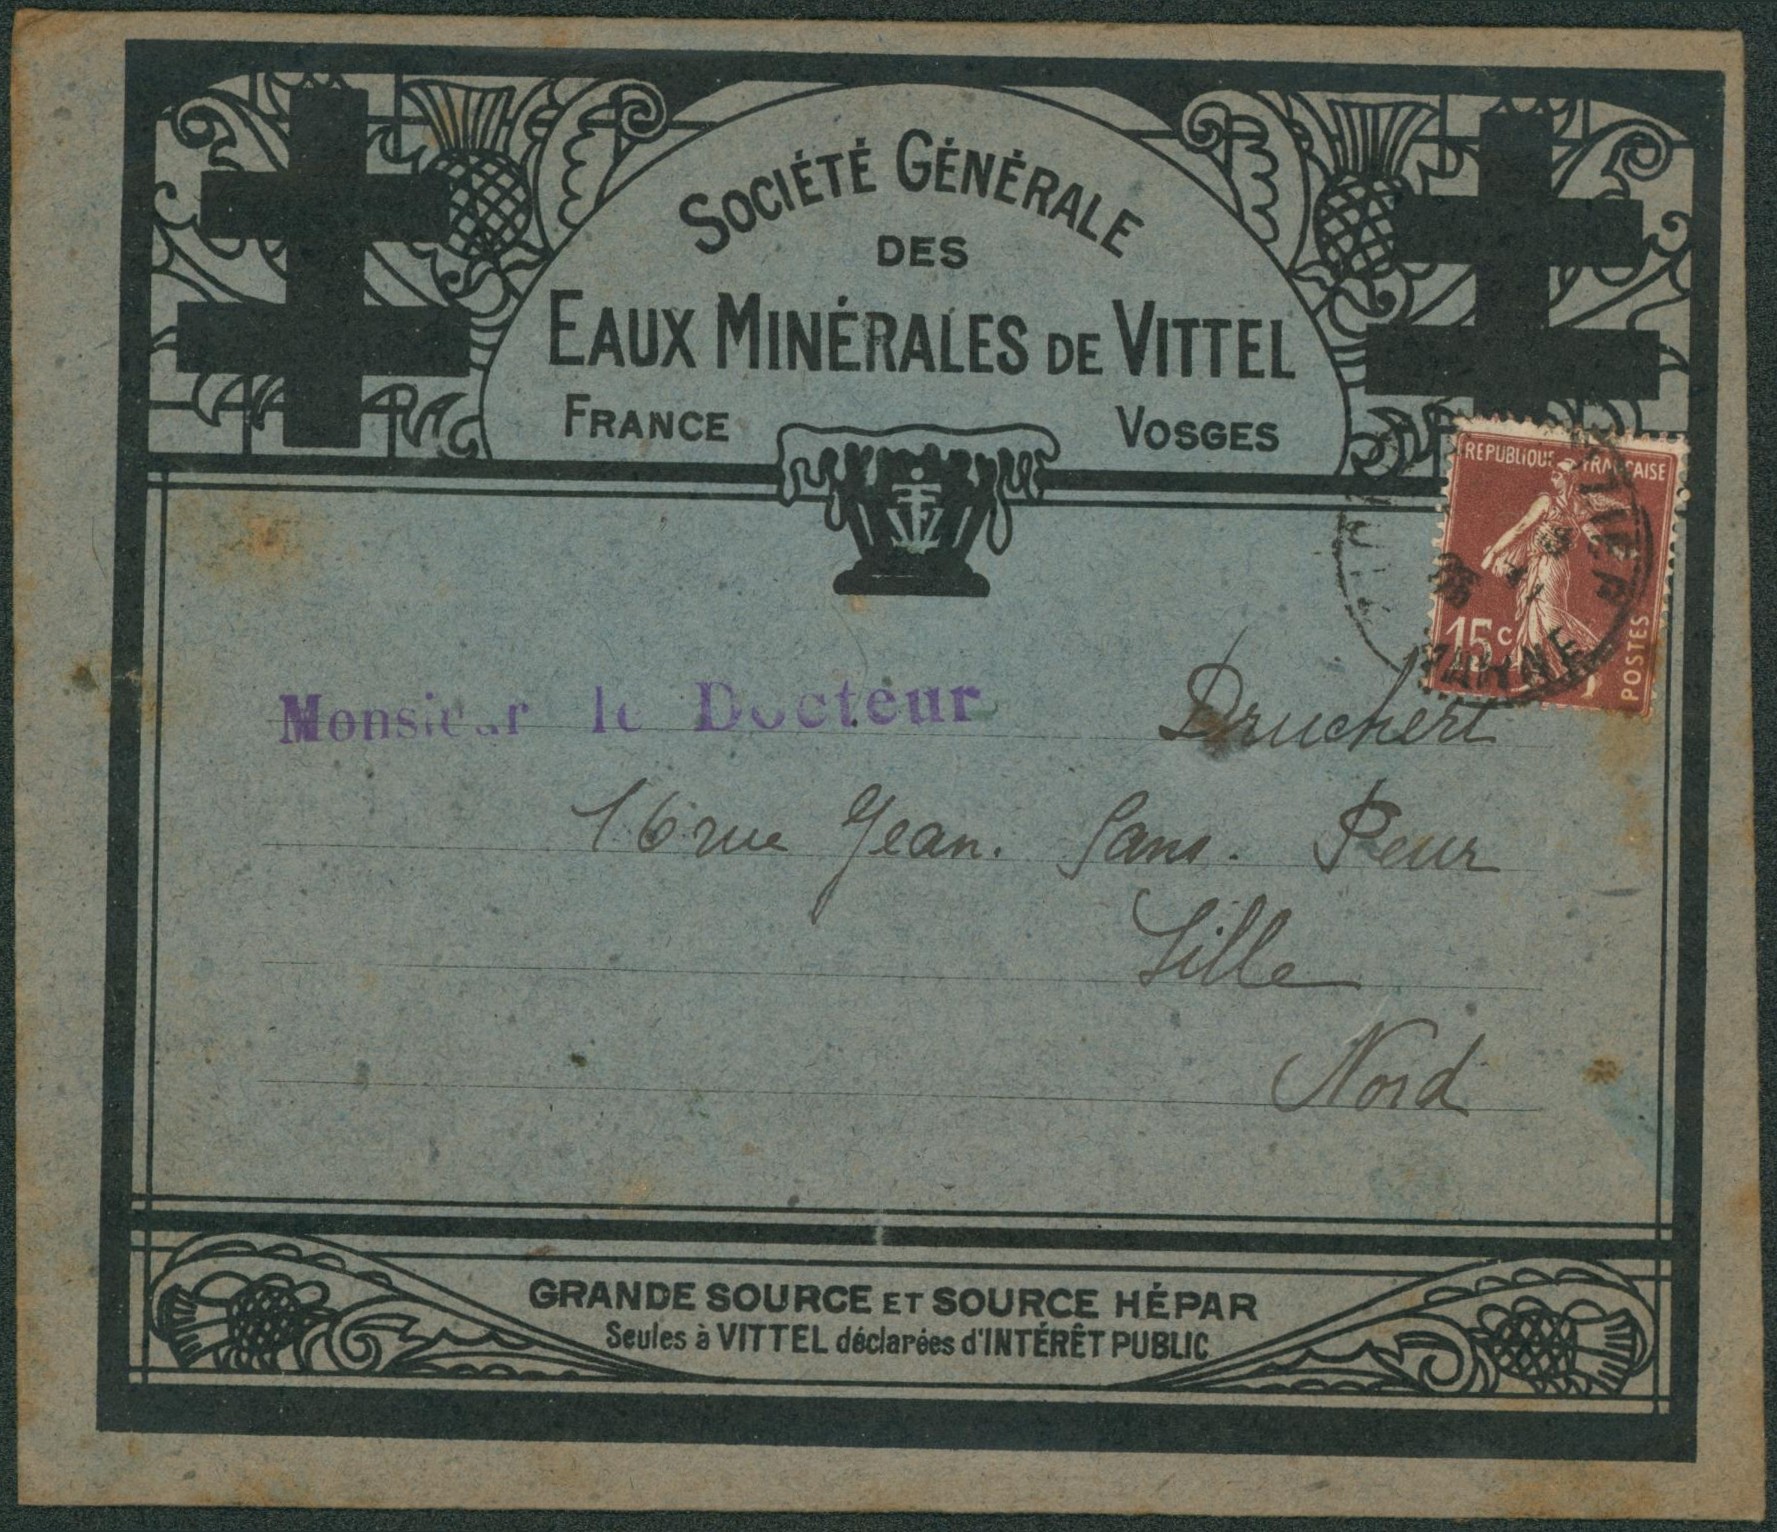 SOCIÉTÉ GÉNÉRALE
DES
EAUX MINÉRALES DE VITTEL
FRANCE VOSGES
REPUBLIQUE FRANÇAISE
15c
POSTES
MARNE
Monsieur le Docteur Druchert
16 rue Jean. Sans. Peur
Lille
Nord
GRANDE SOURCE ET SOURCE HÉPAR
Seules à VITTEL déclarées d'INTÉRÊT PUBLIC